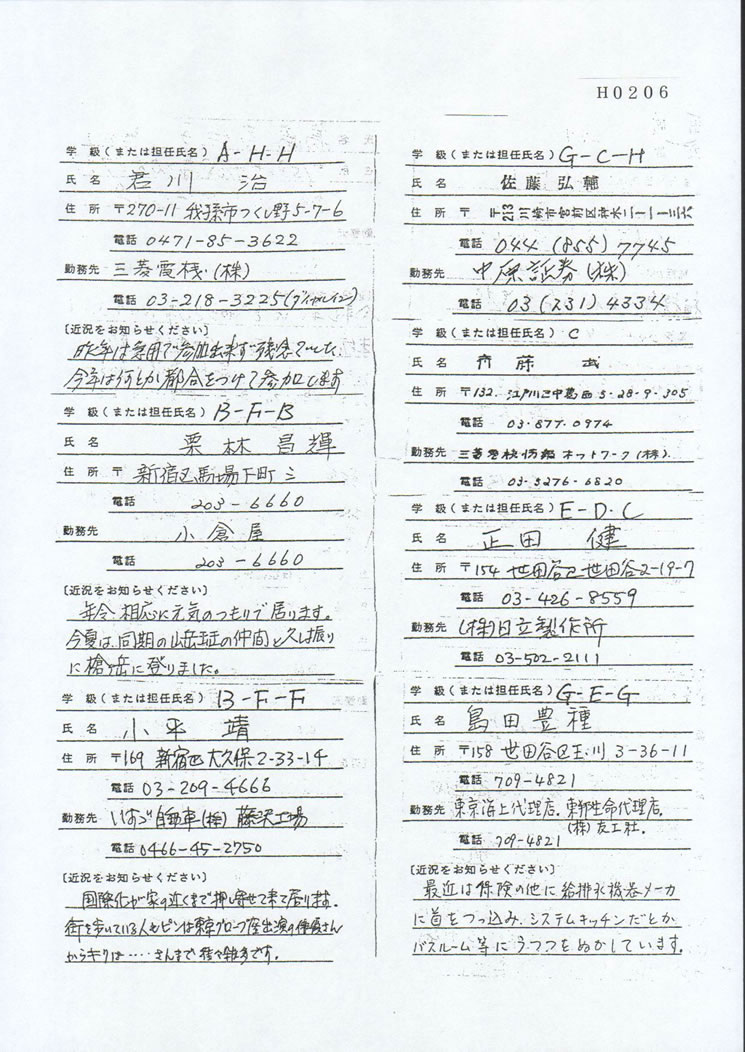 H0206
学 級(または担任氏名) A-H-H
氏 名 君川 治
住 所 〒270-11 我孫市つくし野5-7-6
電話 0471-85-3622
勤務先 三菱電機(株)
電話 03-218-3225(ダイヤルイン)
〔近況をお知らせください〕
昨年は急用で参加出来ず残念でした。
今年は何とか都合をつけて参加します
学 級(または担任氏名) B-F-B
氏 名 栗林昌輝
住 所 〒 新宿区馬場下町三
電話 203-6660
勤務先 小倉屋
電話 203-6660
〔近況をお知らせください〕
年令相応に元気のつもりで居ります。
今夏は、同期の山岳班の仲間と久し振り
に槍ヶ岳に登りました。
学 級(または担任氏名) B-F-F
氏 名 小平 靖
住 所 〒169 新宿区大久保2-33-14
電話 03-209-4666
勤務先 いすゞ自動車(株) 藤沢工場
電話 0466-45-2750
〔近況をお知らせください〕
国際化が家の近くまで押し寄せて来て居ります。
街を歩いている人もピンは東京グローブ座出演の俳優さん
からキリは‥‥さんまで種々雑多です。
学 級(または担任氏名) G-C-H
氏 名 佐藤弘輔
住 所 〒 〒213 川崎市宮前区神木二-一-一三六
電話 044 (855) 7745
勤務先 中原証券(株)
電話 03 (231) 4334
学 級(または担任氏名) C
氏 名 斉藤 武
住 所 〒132. 江戸川区中葛西5-28-9-305
電話 03-877-0974
勤務先 三菱電機情報ネットワーク(株).
電話 03-3276-6820
学 級(または担任氏名) E-D-C
氏 名 正田 健
住 所 〒154 世田谷区世田谷2-19-7
電話 03-426-8559
勤務先 (株)日立製作所
電話 03-502-2111
学 級(または担任氏名) G-E-G
氏 名 島田豊種
住 所 〒158 世田谷区玉川 3-36-11
電話 709-4821
勤務先 東京海上代理店. 東邦生命代理店.
(株)友工社.
電話 709-4821
〔近況をお知らせください〕
最近は保険の他に給排水機器メーカ
に首をつっ込み、システムキッチンだとか
バスルーム等にうつつをぬかしています。